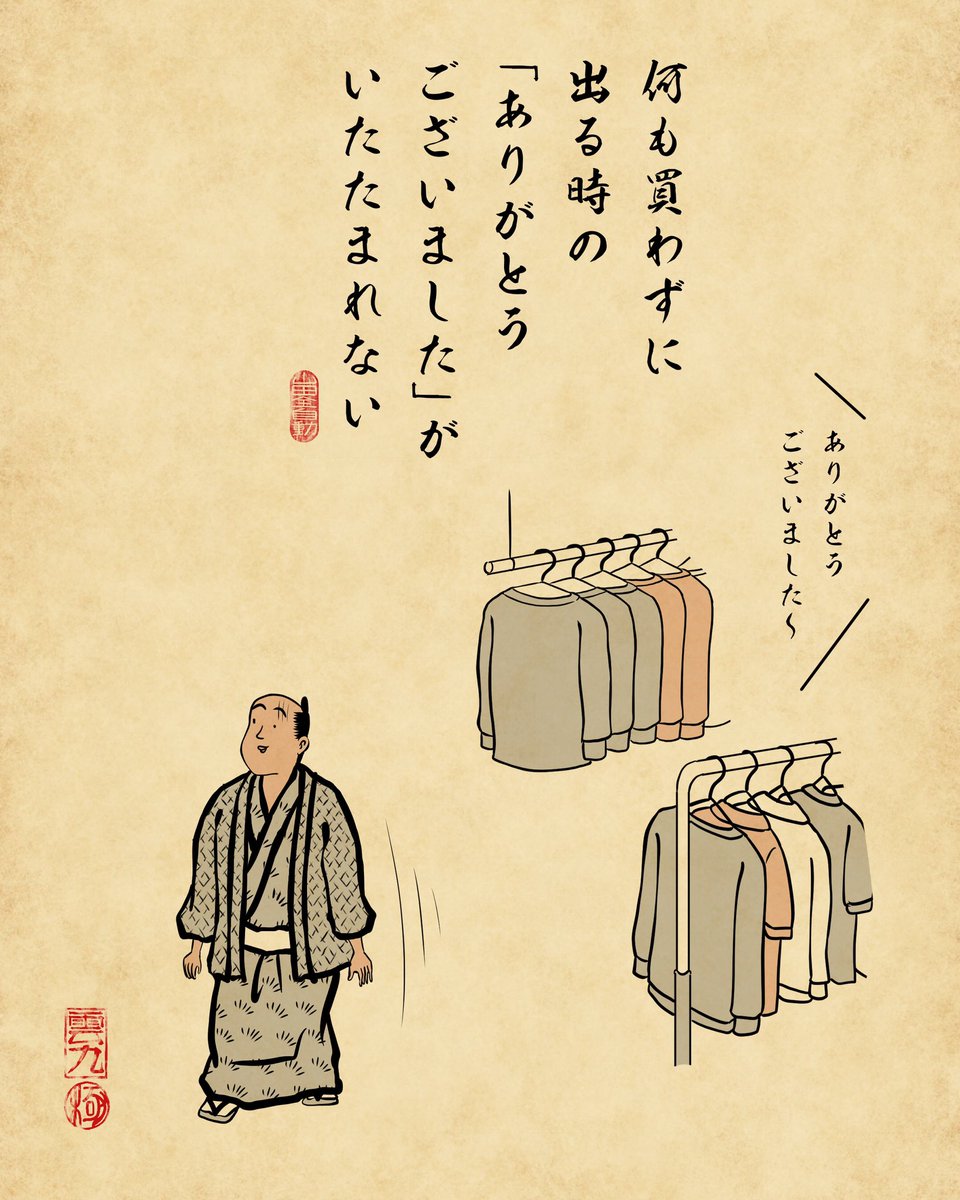 何も買わずに
出る時の
「ありがとう
ございました」が
いたたまれない
ありがとう
ございました〜